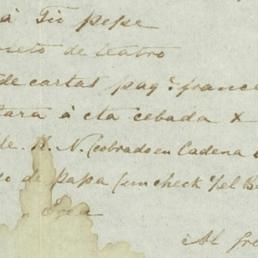 à Tió pepe
de teatro
de cartas pag.s france
para à cta cebada x
de. N. N. (cobrado en Cadena
de papa (un check Yel B
Al fre